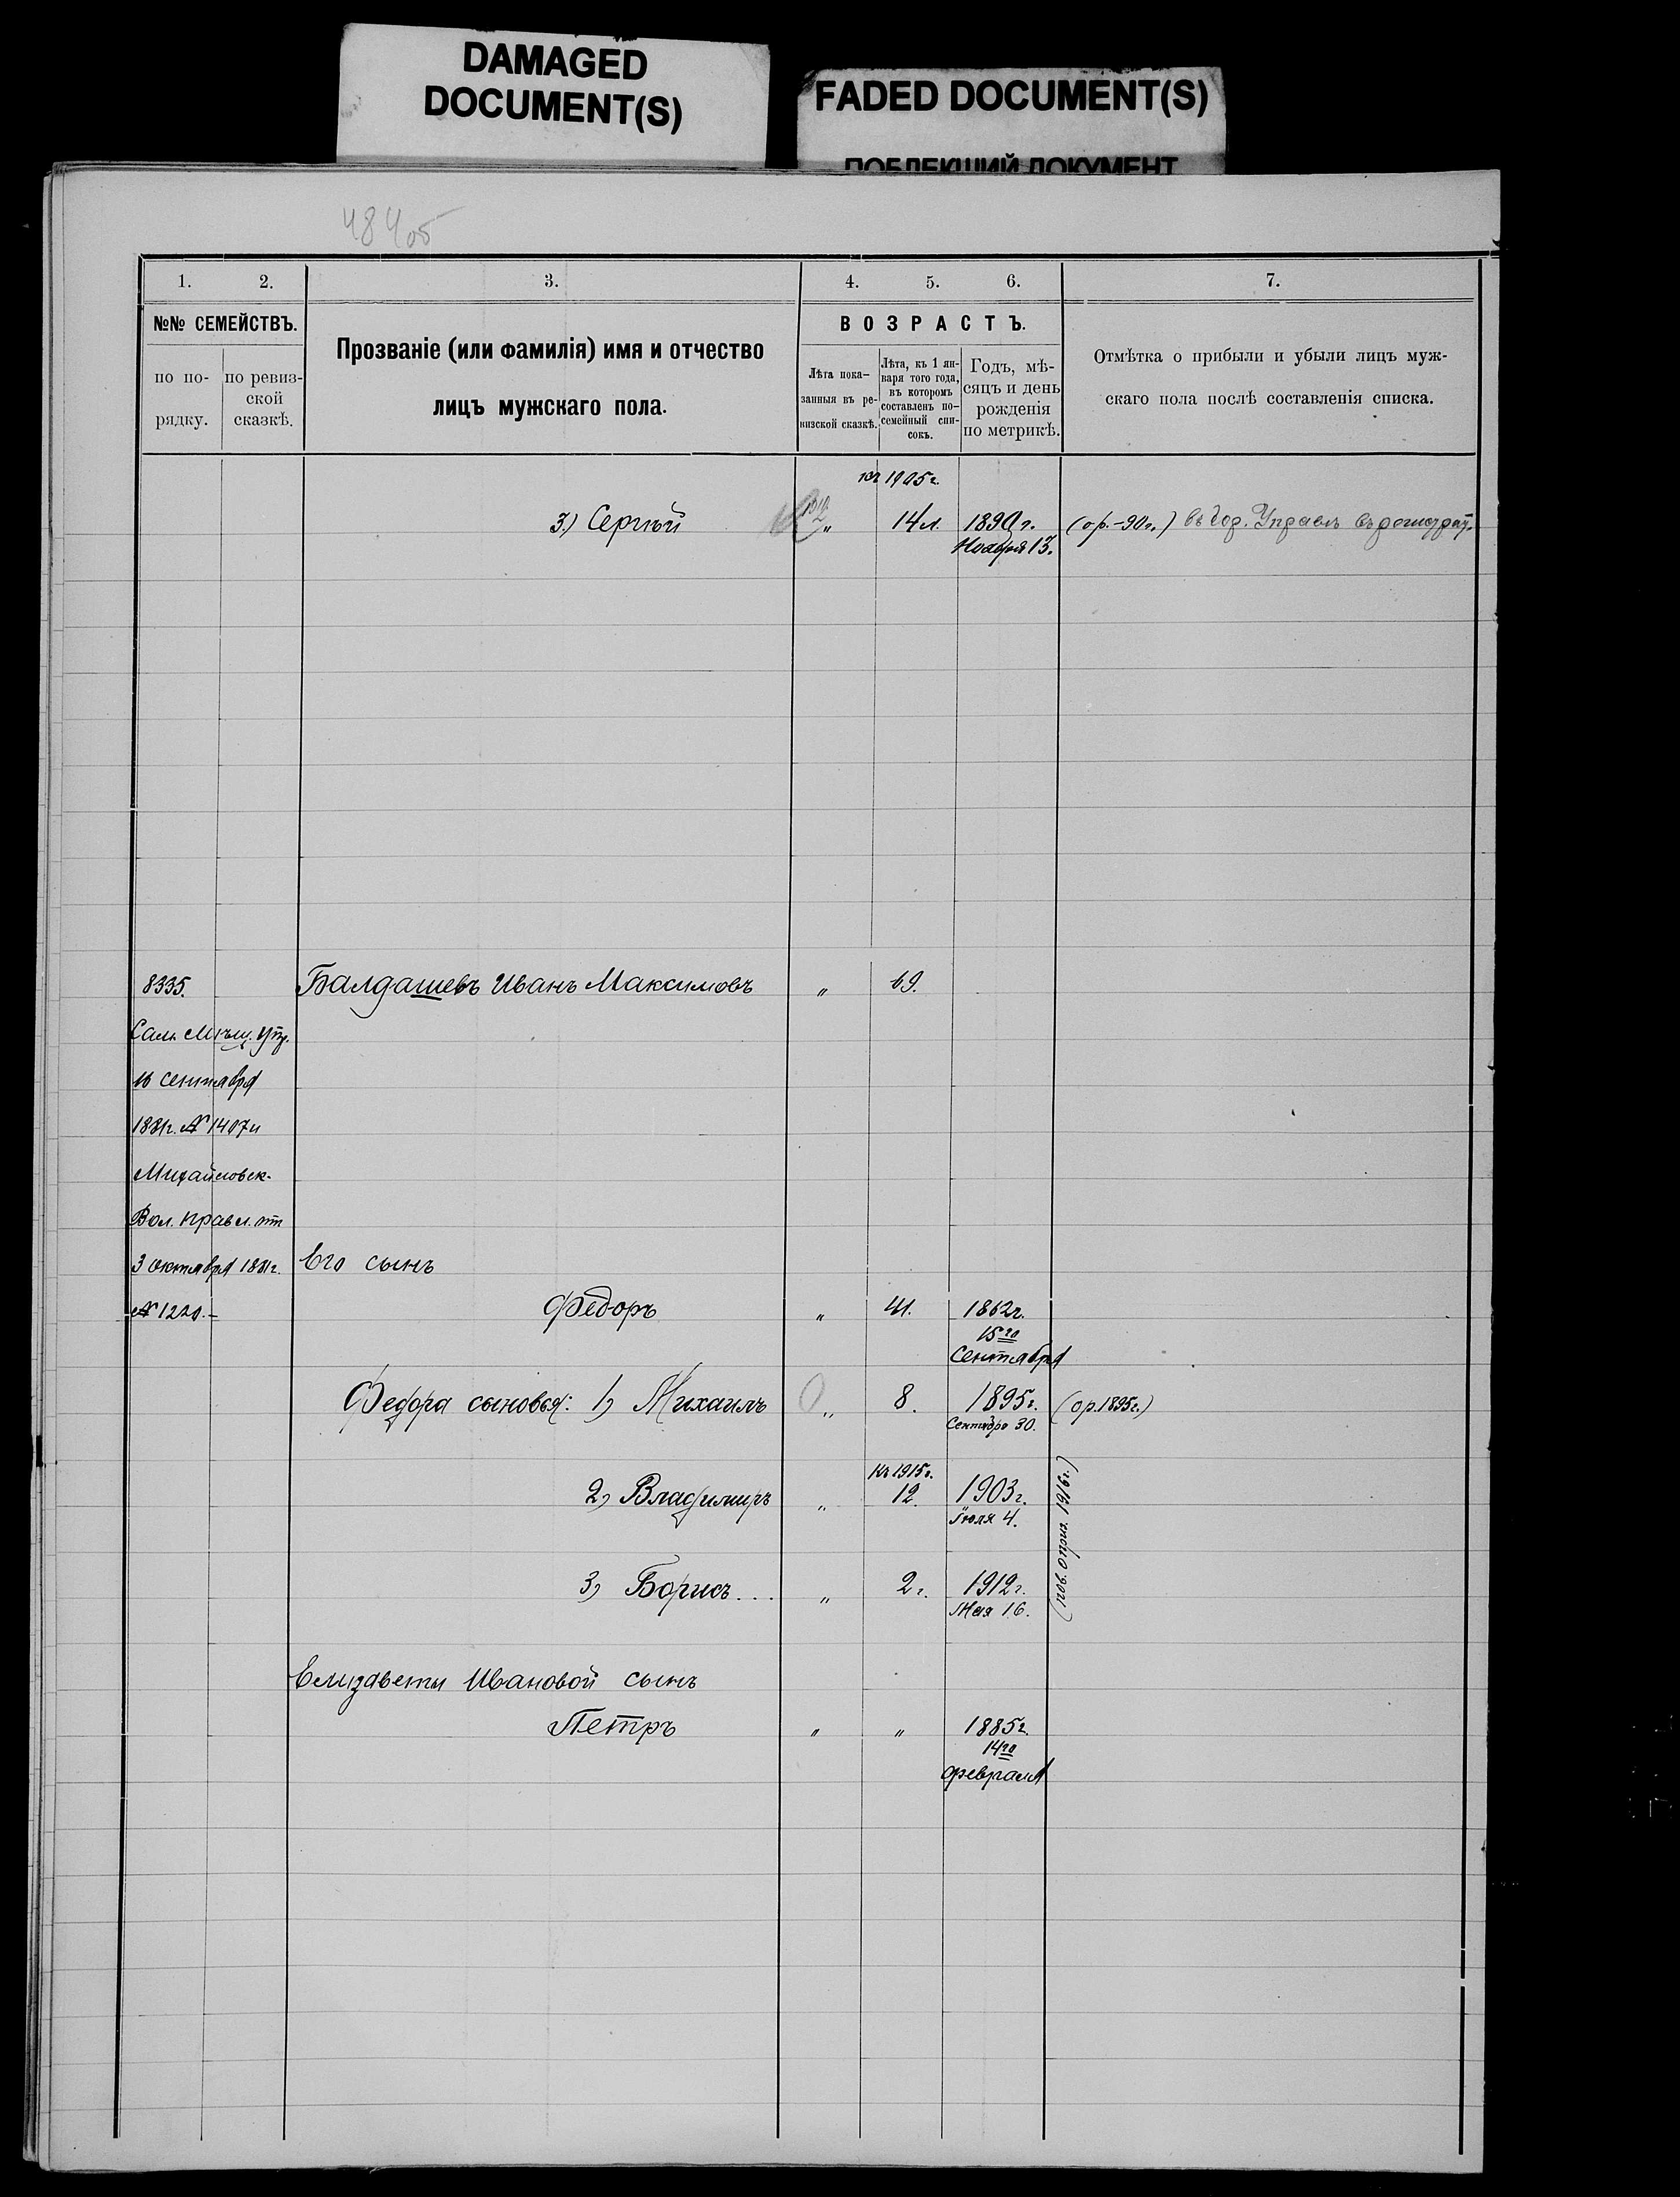 DAMAGED
DOCUMENT(S)
FADED DOCUMENT(S)
ПОБЛЕКШИЙ ДОКУМЕНТ
484об
1. 2. 3. 4. 5. 6. 7.
№№ СЕМЕЙСТВЪ.
по по-
рядку.
по ревиз-
ской
сказкѣ.
Прозваніе (или фамилія) имя и отчество
лицъ мужскаго пола.
ВОЗРАСТЪ.
Лѣта пока-
занныя въ ре-
визской сказкѣ.
Лѣта, къ 1 ян-
варя того года,
въ которомъ
составленъ по-
семейный спи-
сокъ.
Годъ, мѣ-
сяцъ и день
рожденія
по метрикѣ.
Отмѣтка о прибыли и убыли лицъ муж-
скаго пола послѣ составленія списка.
къ 1905 г.
3) Сергѣй " 14 л. 1890 г. (ор.-90 г.) въ Гор. Управѣ
Ноября 13.
8335. Балдашевъ Иванъ Максимовъ " 69.
Сам. Мѣщ. Упр.
16 Сентября
1881г. № 1407 и
Михайловск.
Вол. Правл. отъ
3 Октября 1881г. Его сынъ
№ 1220.- Федоръ " 41. 1862г.
15го
Сентября
Федора сыновья: 1) Михаилъ " 8. 1895г. (ор. 1895г.)
Сентября 30.
Къ 1915г.
2) Владимиръ " 12. 1903г.
Іюля 4.
(пов. о приз. 1916г.)
3) Борисъ... " 2 г. 1912г.
Мая 16.
Елизаветы Ивановой сынъ
Петръ " " 1885г.
14го
февраля